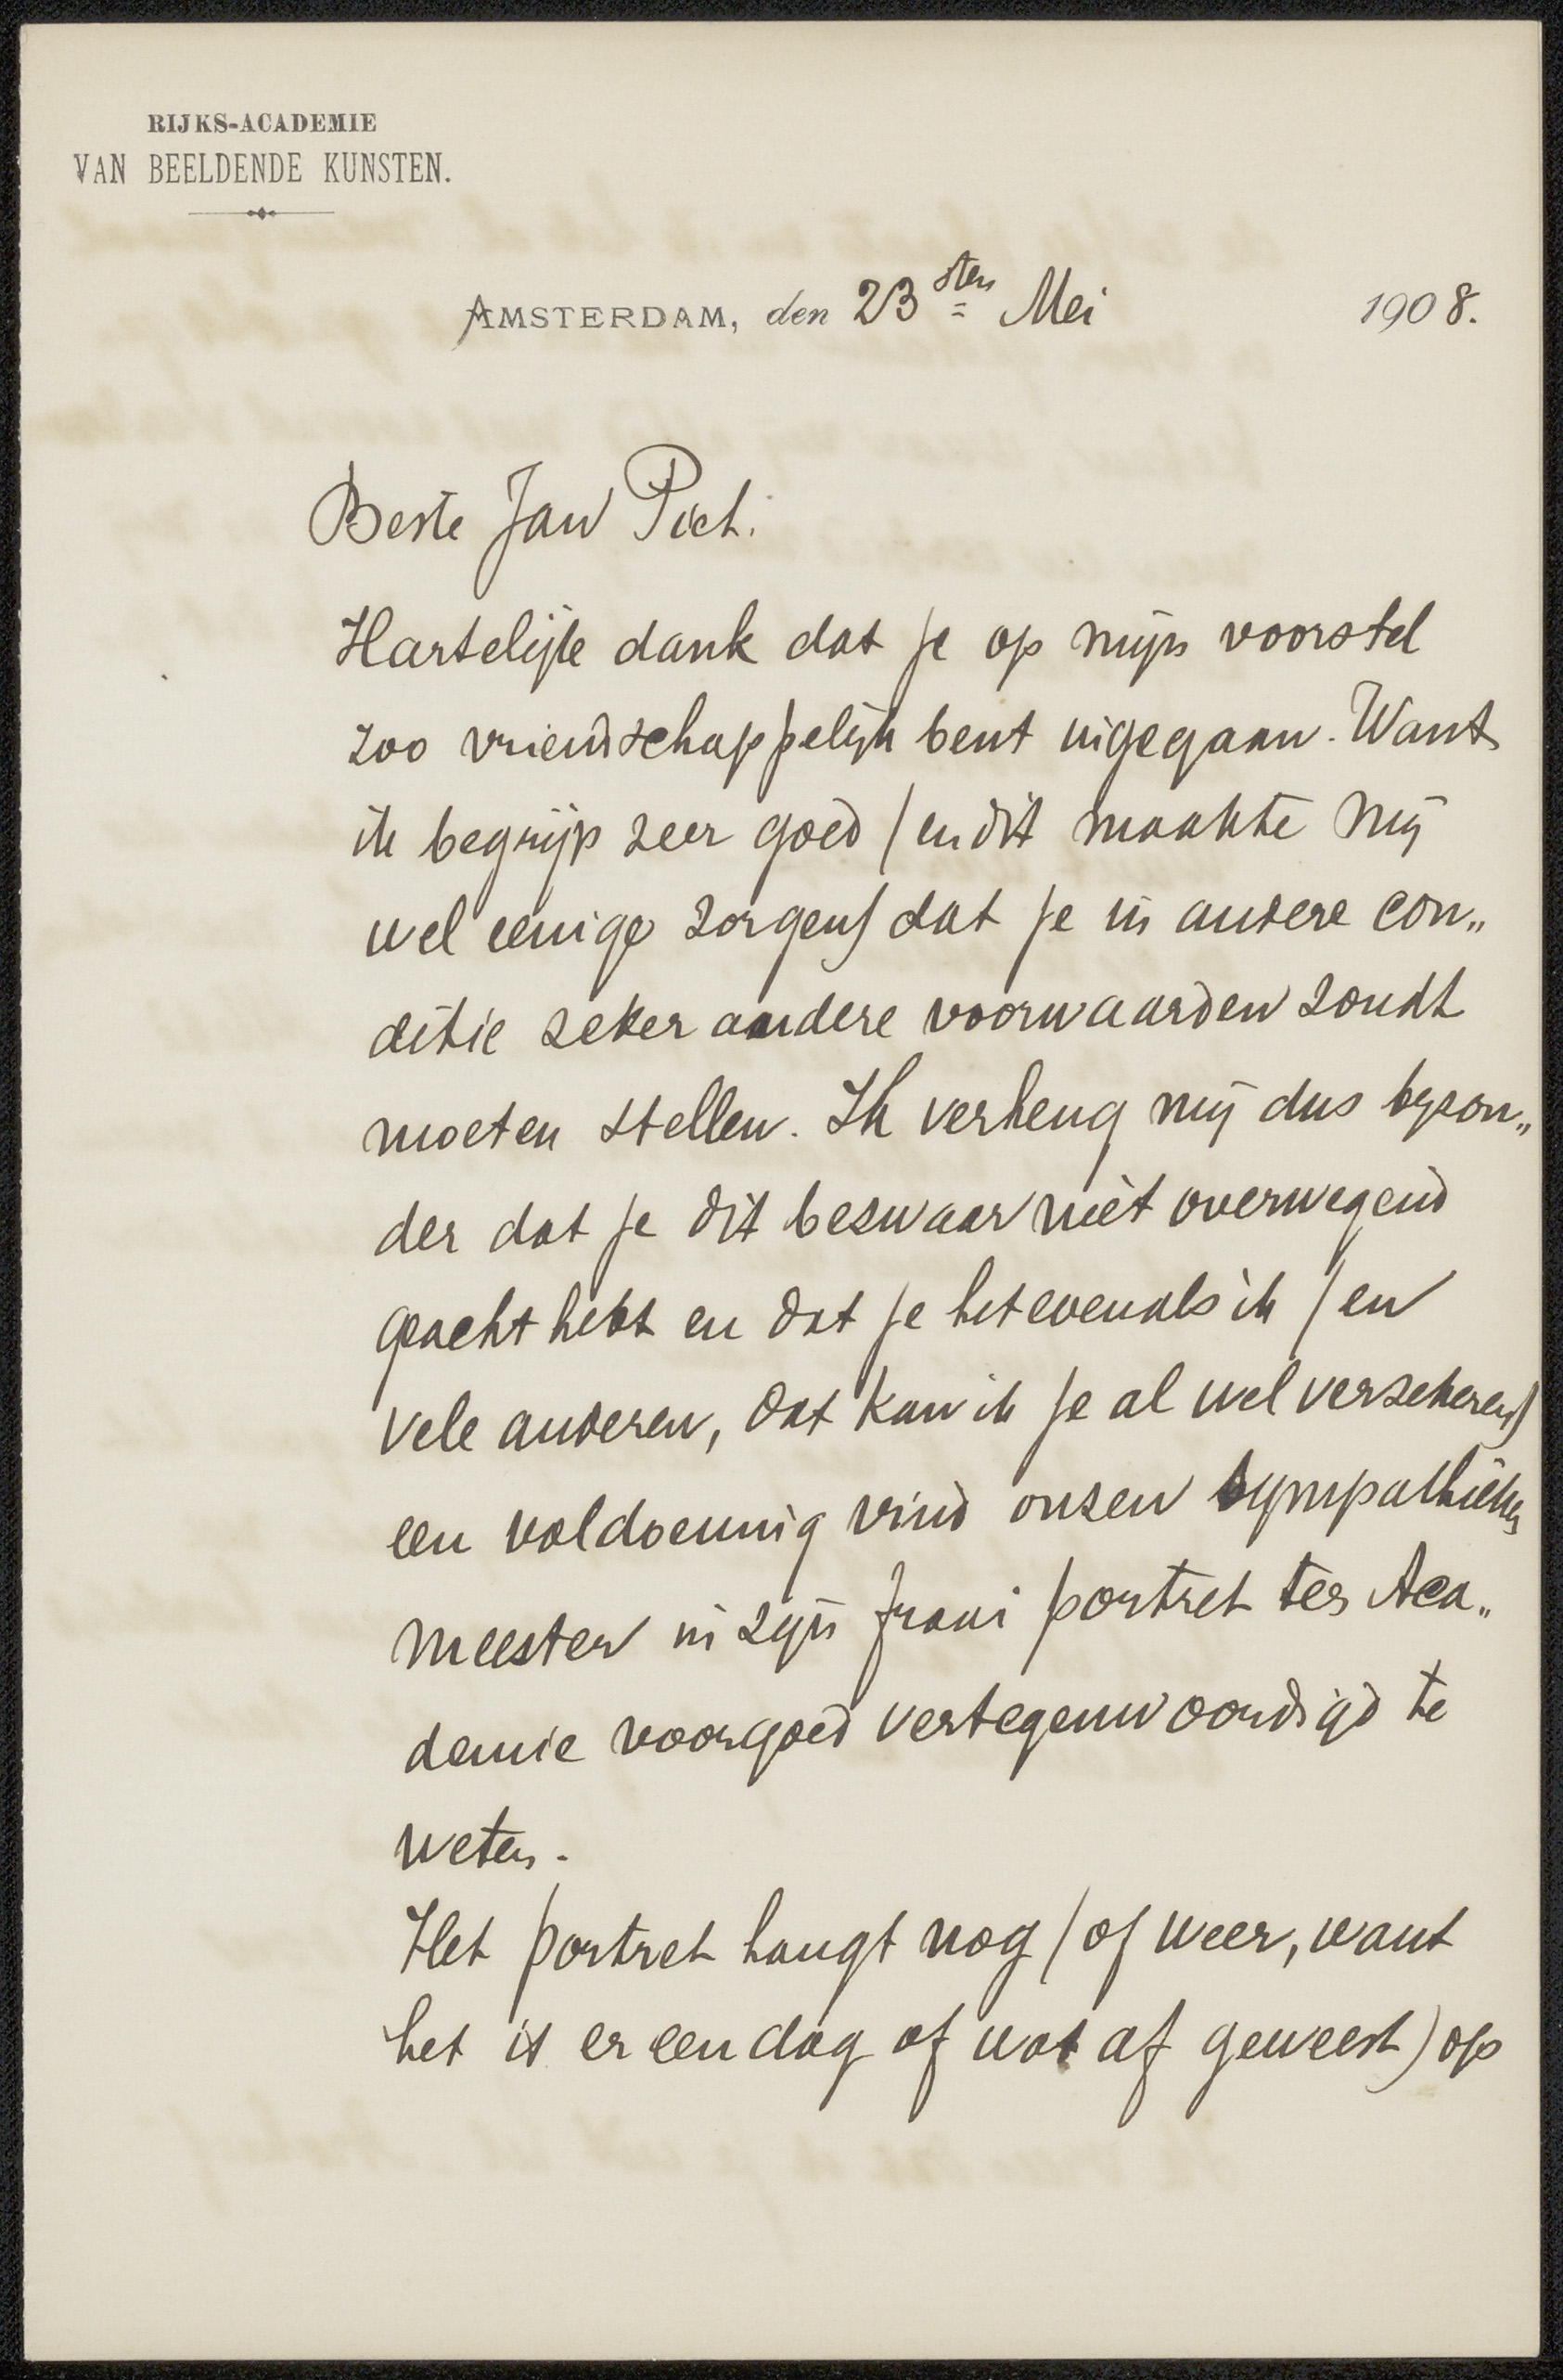 RIJKS-ACADEMIE
VAN BEELDENDE KUNSTEN.
AMSTERDAM, den 23sten Mei 1908.
Beste Jan Piet.
Hartelijke dank dat je op mijn voorstel
zoo vriendschappelijk bent ingegaan. Want
ik begrijp zeer goed (en dit maakte mij
wel eenige zorgen) dat je in andere con„
ditie zeker andere voorwaarden zoudt
moeten stellen. Ik verheug mij dus byzon„
der dat je dit bezwaar niet overwegend
geacht hebt en dat je het evenals ik (en
vele anderen, dat kan ik je al wel verzekeren)
een voldoening vind onzen sympathieken
meester in zijn fraai portret ter Aca„
demie voorgoed vertegenwoordigd te
weten.
Het portret hangt nog (of weer, want
het is er een dag of wat af geweest) op